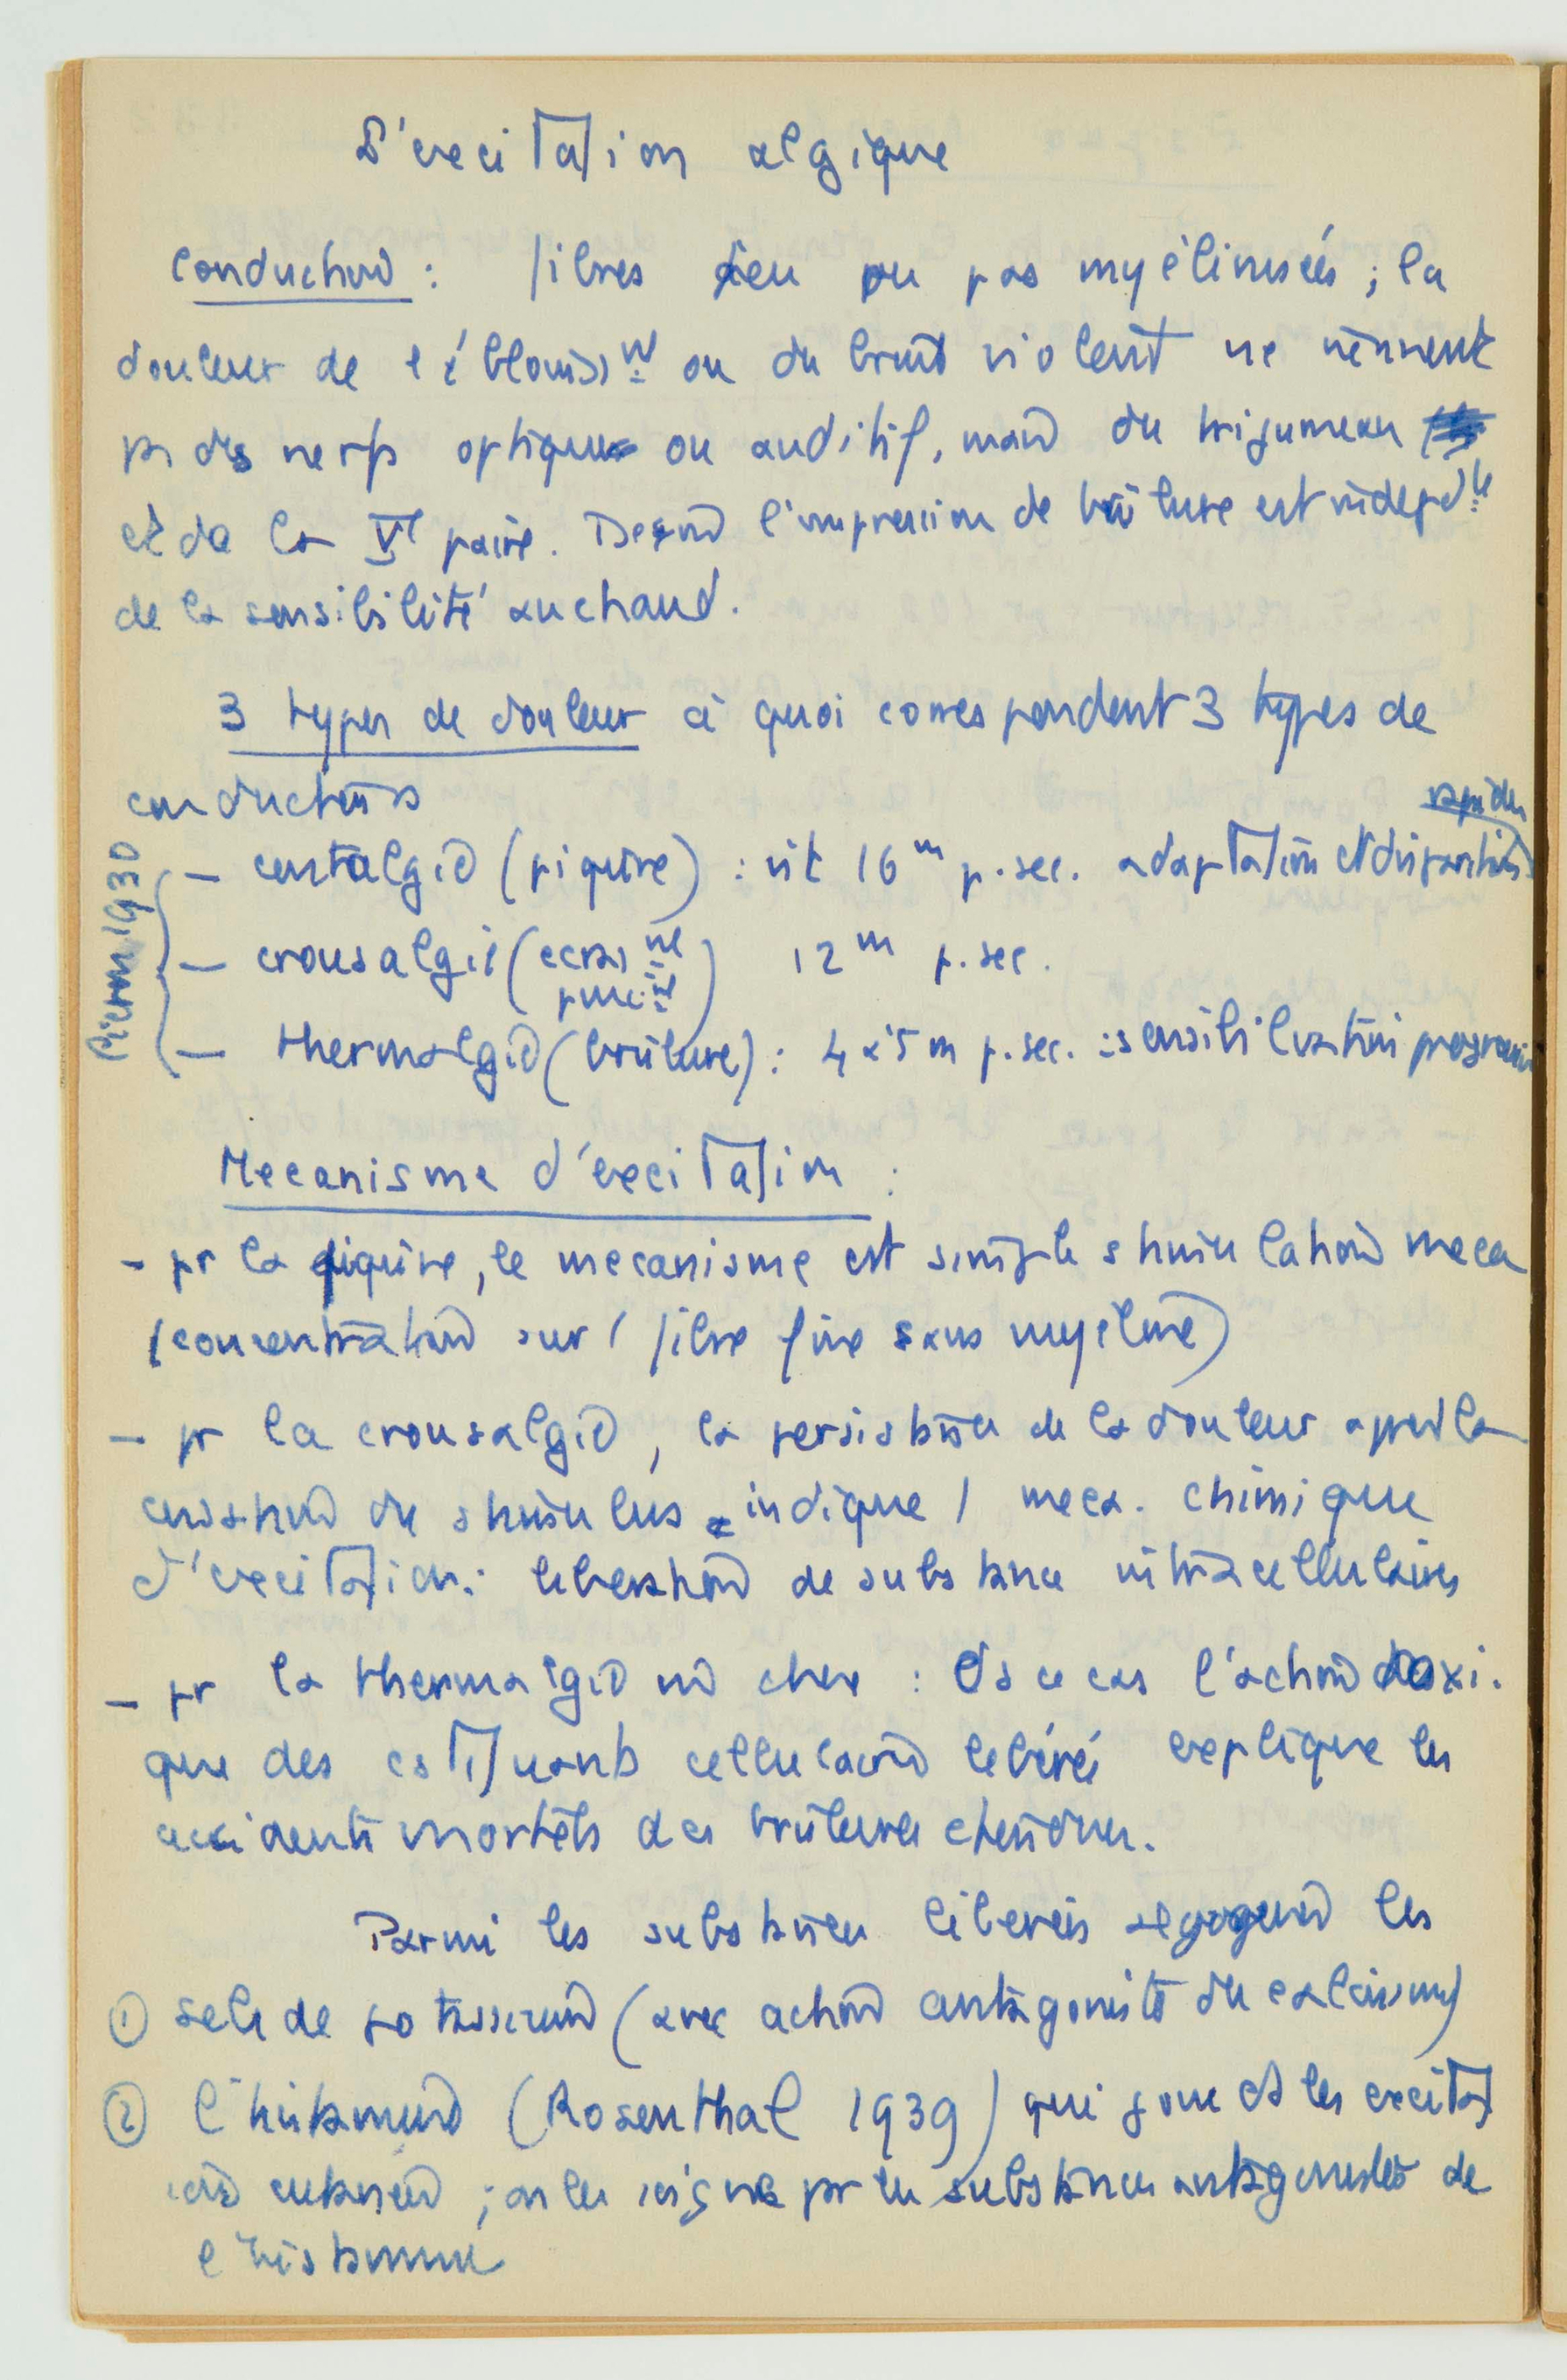 L'excitation algique
Conduction : fibres peu ou pas myélinisées ; la
douleur de l'éblouissnt ou du bruit violent ne viennent
pas des nerfs optiques ou auditif, mais du trijumeau
et de la Ve paire. De même l'impression de brûlure est indépdte
de la sensibilité au chaud.
3 types de douleur à quoi correspondent 3 types de
conducteurs
rapides
Pieron 1930
- centalgie (piqûre) : vit 16 m p. sec. adaptation et disparition
- crousalgie (écrasnt pincnt) 12 m p. sec.
- thermalgie (brûlure) : 4 à 5 m p. sec. : sensibilisation progressive
Mecanisme d'excitation :
- pr la piqûre, le mecanisme est simple stimulation meca
(concentration sur 1 fibre fine sans myéline)
- pr la crousalgie, la persistance de la douleur après la
cessation du stimulus indique 1 meca. chimique
d'excitation : liberation de substance intracellulaires
- pr la thermalgie : ds ce cas l'action toxi-
que des constituants cellulaires libérés explique les
accidents mortels des brûlures étendues.
Parmi les substances libérées algogènes les
① sels de potassium (avec action antagoniste du calcium)
② l'histamine (Rosenthal 1939) qui joue ds les excitat
ions cutanées ; on les soigne par les substances antagonistes de
l'histamine